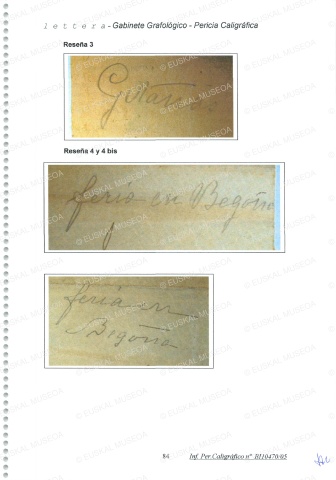 lettera - Gabinete Grafológico - Pericia Caligráfica
Reseña 3
Reseña 4 y 4 bis
feria en Begoña
feria en
Begoña
84 Inf. Per.Caligráfico nº BI10470/05
© EUSKAL MUSEOA